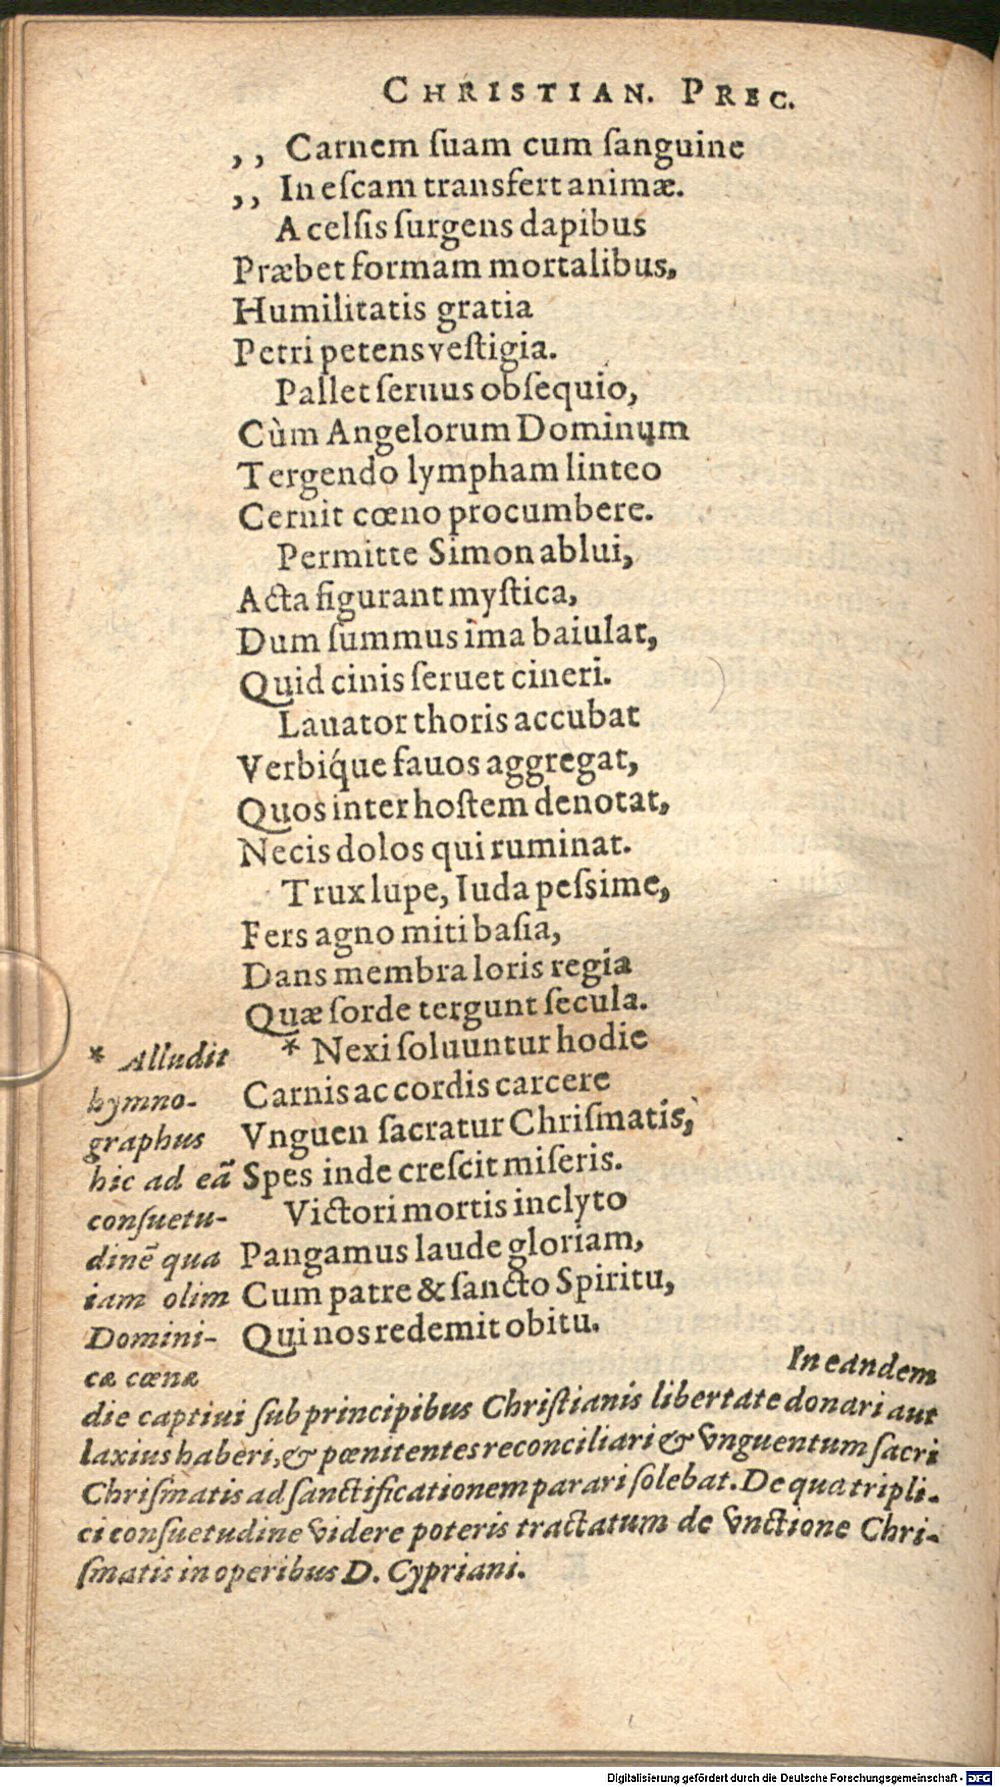 CHRISTIAN. PREC.
,, Carnem ſuam cum ſanguine
,, In eſcam transfert animæ.
A celſis ſurgens dapibus
Præbet formam mortalibus,
Humilitatis gratia
Petri petens veſtigia.
Pallet ſeruus obſequio,
Cùm Angelorum Dominum
Tergendo lympham linteo
Cernit cœno procumbere.
Permitte Simon ablui,
Acta figurant myſtica,
Dum ſummus ima baiulat,
Quid cinis ſeruet cineri.
Lauator thoris accubat
Verbiq́ue fauos aggregat,
Quos inter hoſtem denotat,
Necis dolos qui ruminat.
Trux lupe, Iuda peſsime,
Fers agno miti baſia,
Dans membra loris regia
Quæ ſorde tergunt ſecula.
* Nexi ſoluuntur hodie
Carnis ac cordis carcere
Vnguen ſacratur Chriſmatis,
Spes inde creſcit miſeris.
Victori mortis inclyto
Pangamus laude gloriam,
Cum patre & ſancto Spiritu,
Qui nos redemit obitu.
* Alludit
hymno-
graphus
hic ad eã
conſuetu-
dinē qua
iam olim
Domini-
cæ cœnæ
In eandem
die captiui ſub principibus Chriſtianis libertate donari aut
laxius haberi, & pœnitentes reconciliari & vnguentum ſacri
Chriſmatis ad ſanctificationem parari ſolebat. De qua tripli-
ci conſuetudine videre poteris tractatum de vnctione Chri-
ſmatis in operibus D. Cypriani.
Digitalisierung gefördert durch die Deutsche Forschungsgemeinschaft - DFG